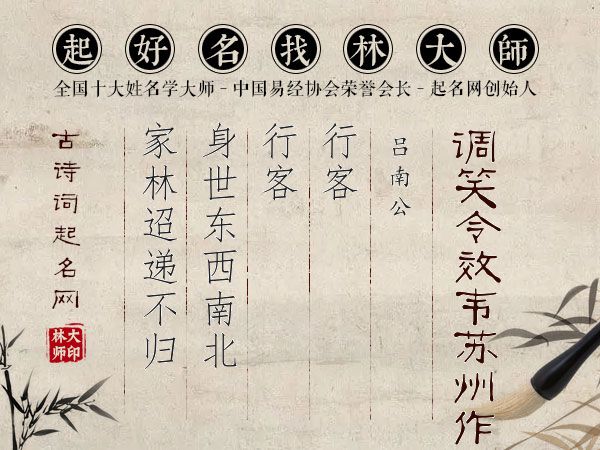 起好名找林大師
全国十大姓名学大师-中国易经协会荣誉会长-起名网创始人
调笑令效韦苏州作
吕南公
行客
行客
身世东西南北
家林迢递不归
古诗词起名网
大师印林